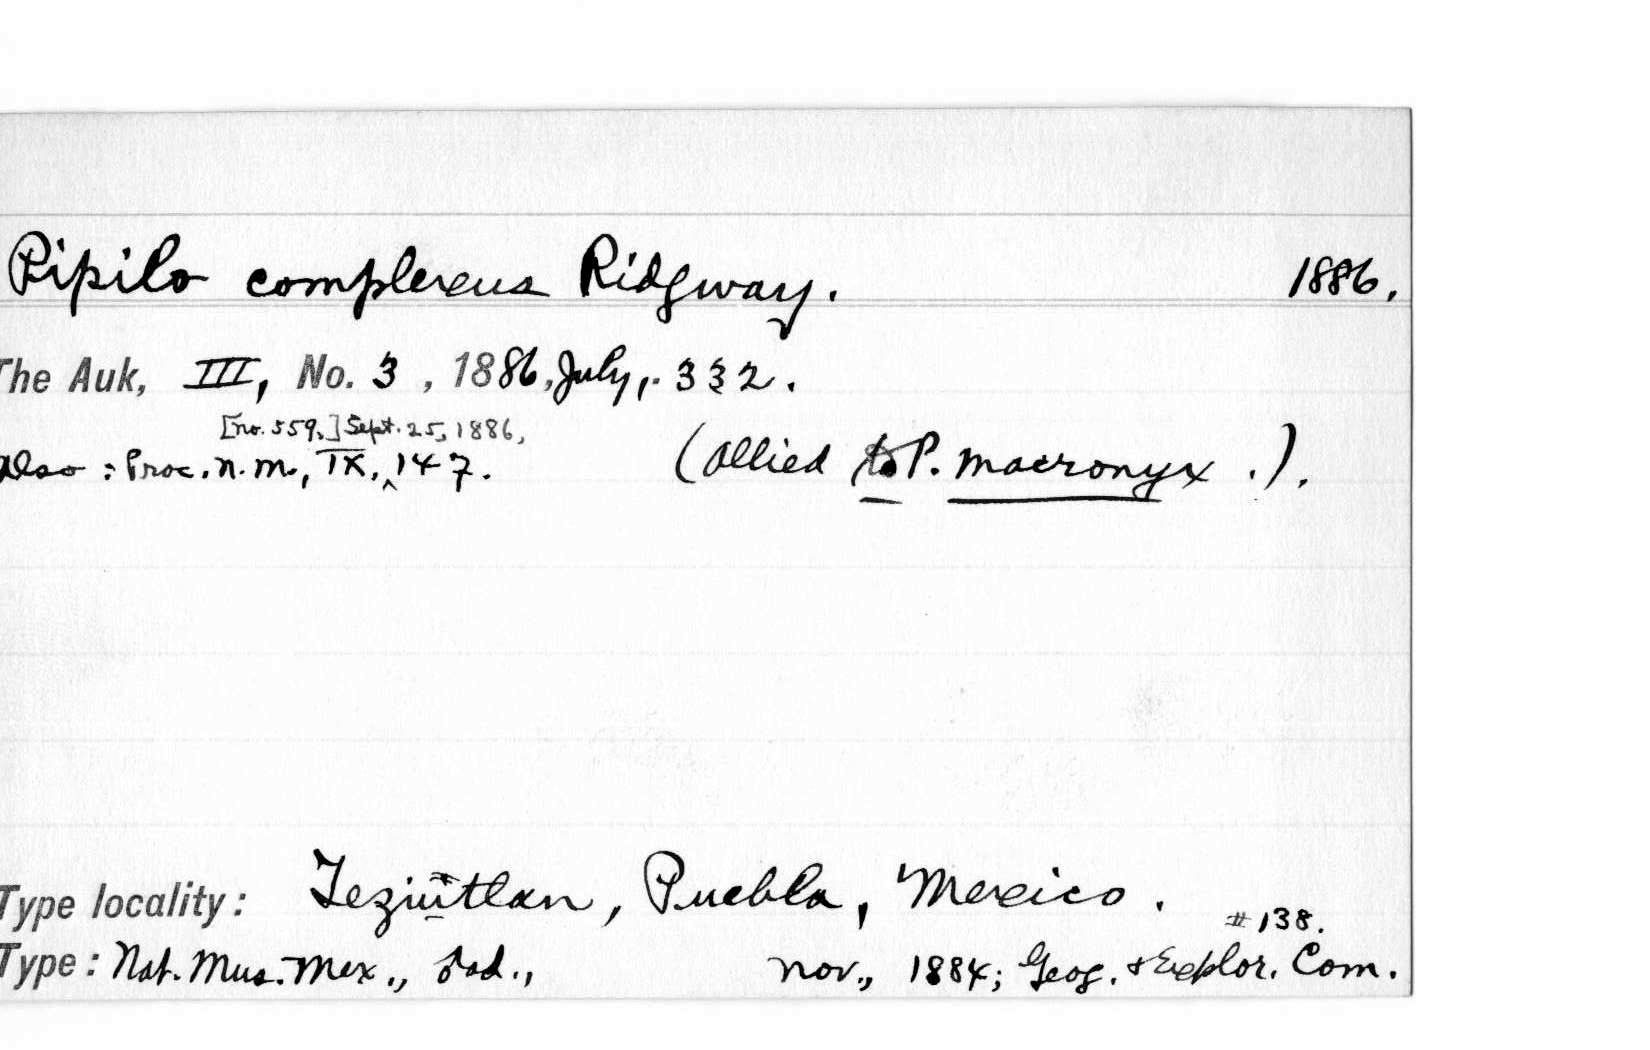 Pipilo complexus Ridgway. 1886.
The Auk, III, No. 3, 1886, July, 332.
[no. 559,] Sept. 25, 1886,
Also: Proc. N. M., IX, ‸147. (Allied to P. macronyx.).
Type locality: Teziutlan, Puebla, Mexico.
#138.
Type: Nat. Mus. Mex., ♂ad., Nov., 1884; Geog. & Explor. Com.